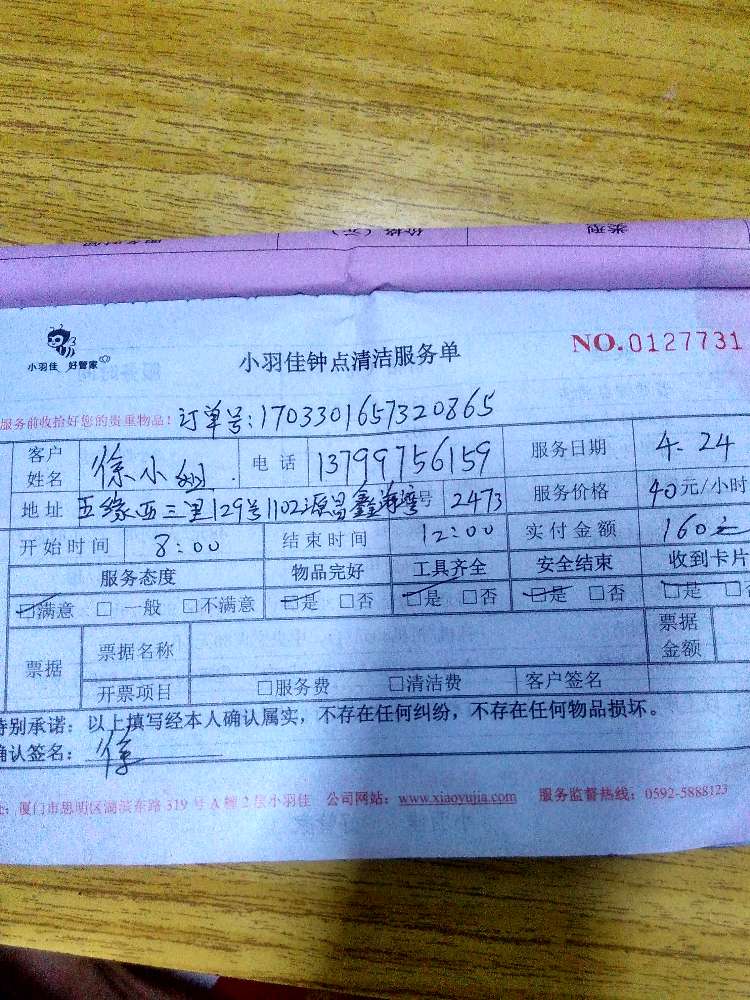 类型 价格（元）
小羽佳 好管家
小羽佳钟点清洁服务单
NO.0127731
服务前收拾好您的贵重物品！订单号:1703301657320865
客户姓名 徐小姐. 电话 13799756159 服务日期 4.24
地址 五缘西三里129号1102源昌鑫海湾 号 2473 服务价格 40元/小时
开始时间 8:00 结束时间 12:00 实付金额 160元
服务态度 物品完好 工具齐全 安全结束 收到卡片
☑满意 □一般 □不满意 ☑是 □否 ☑是 □否 ☑是 □否 ☑是 □
票据 票据名称 票据金额
开票项目 □服务费 □清洁费 客户签名
特别承诺：以上填写经本人确认属实，不存在任何纠纷，不存在任何物品损坏。
确认签名：徐
厦门市思明区湖滨东路319号A幢2层小羽佳 公司网站：www.xiaoyujia.com 服务监督热线：0592-5888123